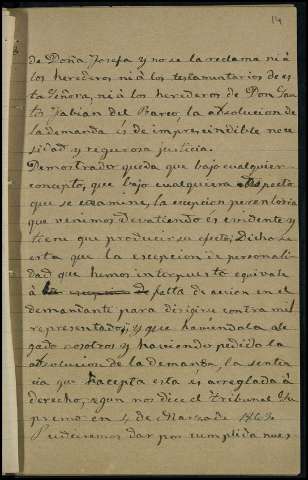 14
de Doña Josefa y no se la reclama ni á
los herederos ni á los testamentarios de es
ta Señora, ni á los herederos de Don San
tos Fabian del Barco, la absolucion de
la demanda és de imprescindible nece
sidad y regurosa justicia.
Demostrado queda que bajo cualquier
concepto, que bajo cualquiera aspecto
que se examine, la escepcion perentoria
que venimos devatiendo es evidente y
tiene que producir su efecto; Dicho se
esta que la escepcion de personali
dad que hemos interpuesto equivale
á falta de accion en el
demandante para dirigirse contra mis
representados; y que haviendola ale
gado nosotros y haviendo pedido la
absolucion de la demanda, la senten
cia que acepta esta es arreglada á
derecho, segun nos dice el Tribunal Su
premo en 4 de Marzo de 1863.
Pudieramos dar por cumplida nues-